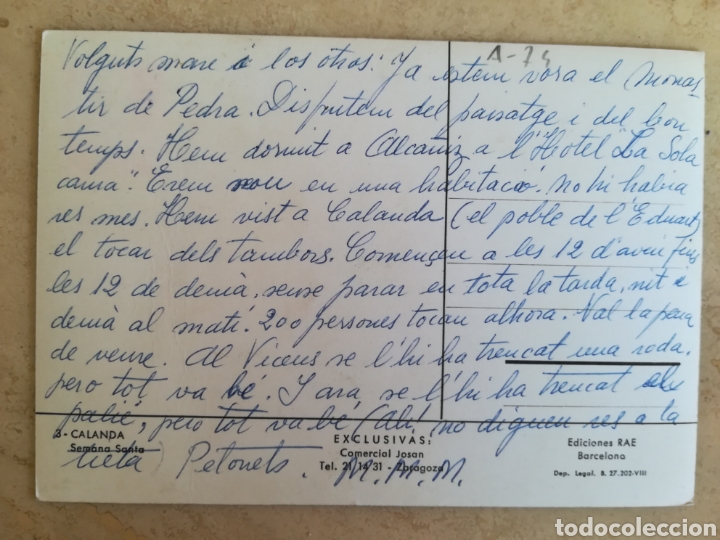 A-74
Volguts mare i los otros: Ja estem vora el Monas-
tir de Pedra. Disfrutem del paisatge i del bon
temps. Hem dormit a Alcañiz a l'"Hotel La Sola
cama". Erem nou en una habitació. No hi habia
res mes. Hem vist a Calanda (el poble de l'Eduart)
el tocar dels tambors. Començen a les 12 d'avui fins
les 12 de demà, sense parar en tota la tarda, nit i
demà al matí. 200 persones tocan alhora. Val la pena
de veure. Al Vicens se l'hi ha trencat una roda.
pero tot va bé. I ara, se l'hi ha trencat el
palié, pero tot va bé (Ah! no diguen res a la
tieta) Petonets. M.M.M.
3-CALANDA
Semana Santa
EXCLUSIVAS:
Comercial Josan
Tel. 21 14 31 - Zaragoza
Ediciones RAE
Barcelona
Dep. Legal. B. 27.202-VIII
todocoleccion.net